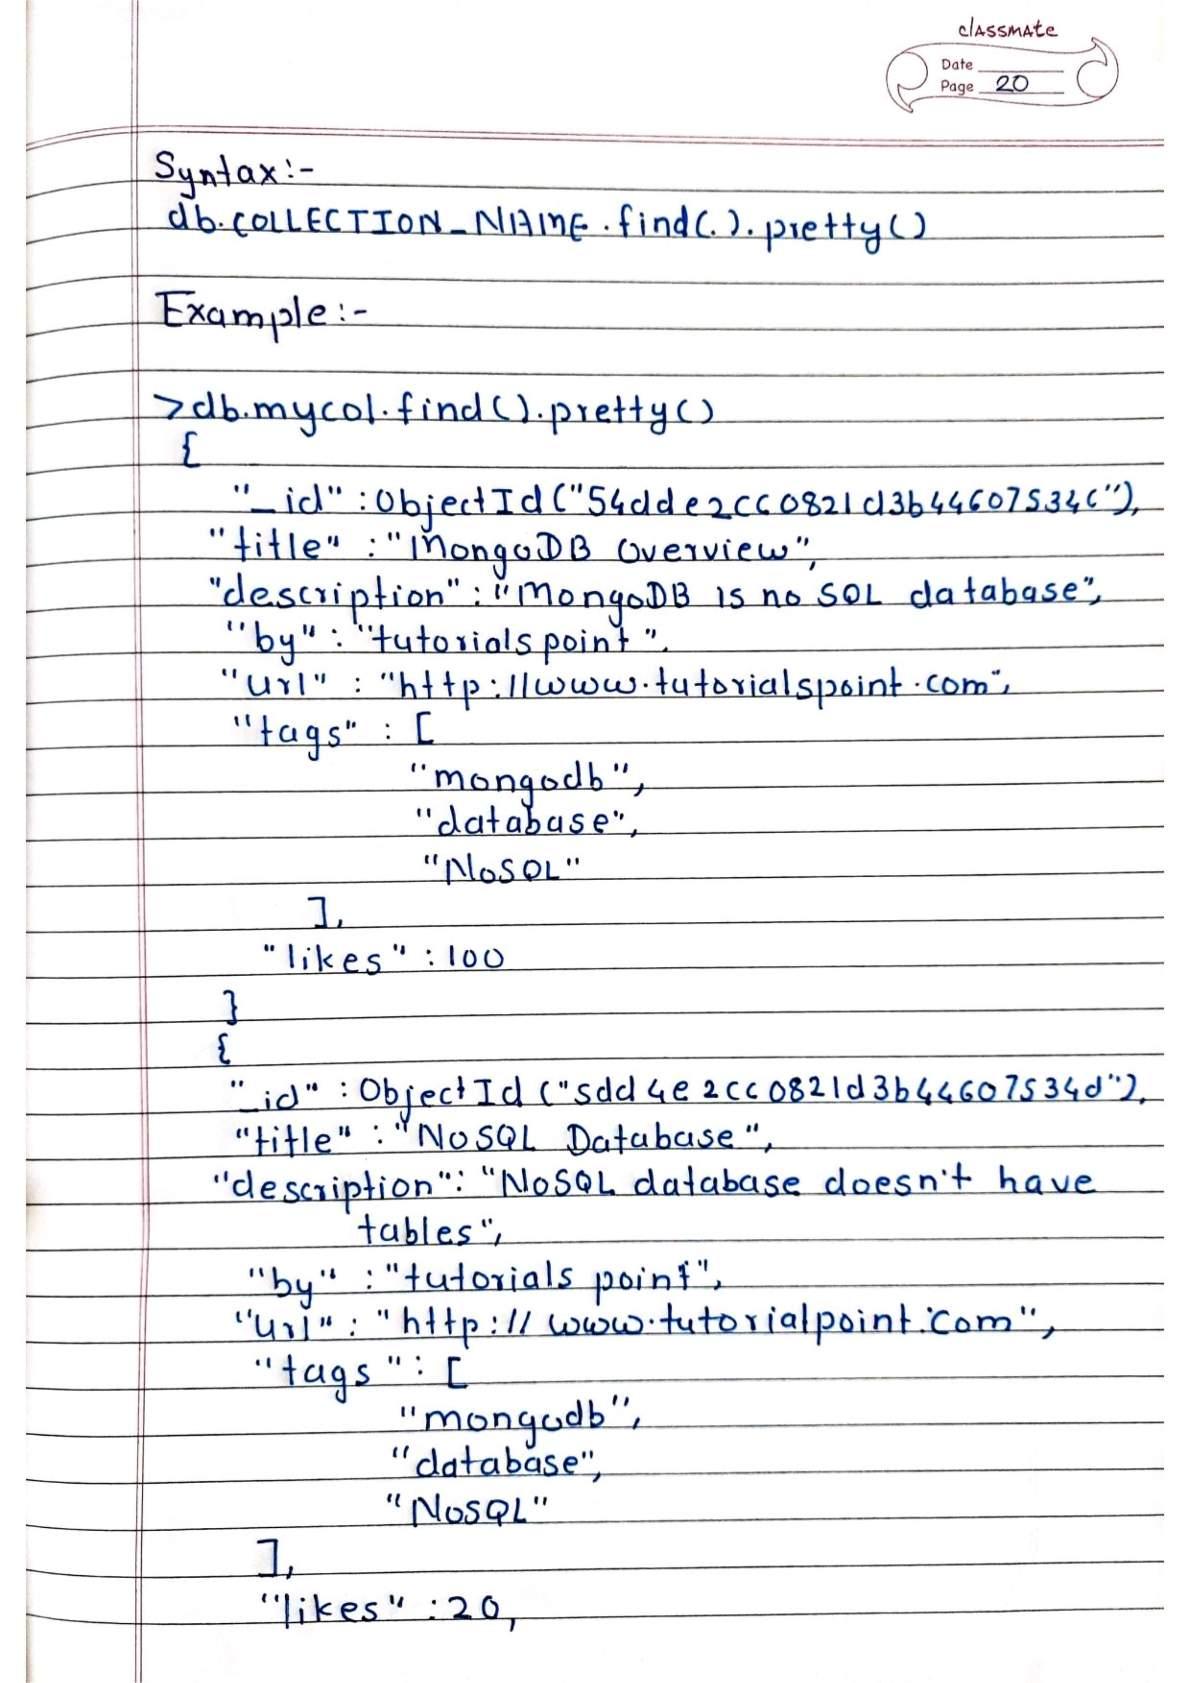 classmate
Date
Page 20
Syntax:-
db.COLLECTION_NAME.find(.).pretty()
Example:-
>db.mycol.find().pretty()
{
"_id" : ObjectId("54dde2cc0821d3b44607534c"),
"title" : "MongoDB Overview",
"description" : "MongoDB is no SQL database",
"by" : "tutorials point",
"url" : "http://www.tutorialspoint.com",
"tags" : [
"mongodb",
"database",
"NoSQL"
],
"likes" : 100
}
{
"_id" : ObjectId ("5dd4e2cc0821d3b44607534d"),
"title" : "NoSQL Database",
"description" : "NoSQL database doesn't have
tables",
"by" : "tutorials point",
"url" : "http://www.tutorialpoint.com",
"tags" : [
"mongodb",
"database",
"NoSQL"
],
"likes" : 20,